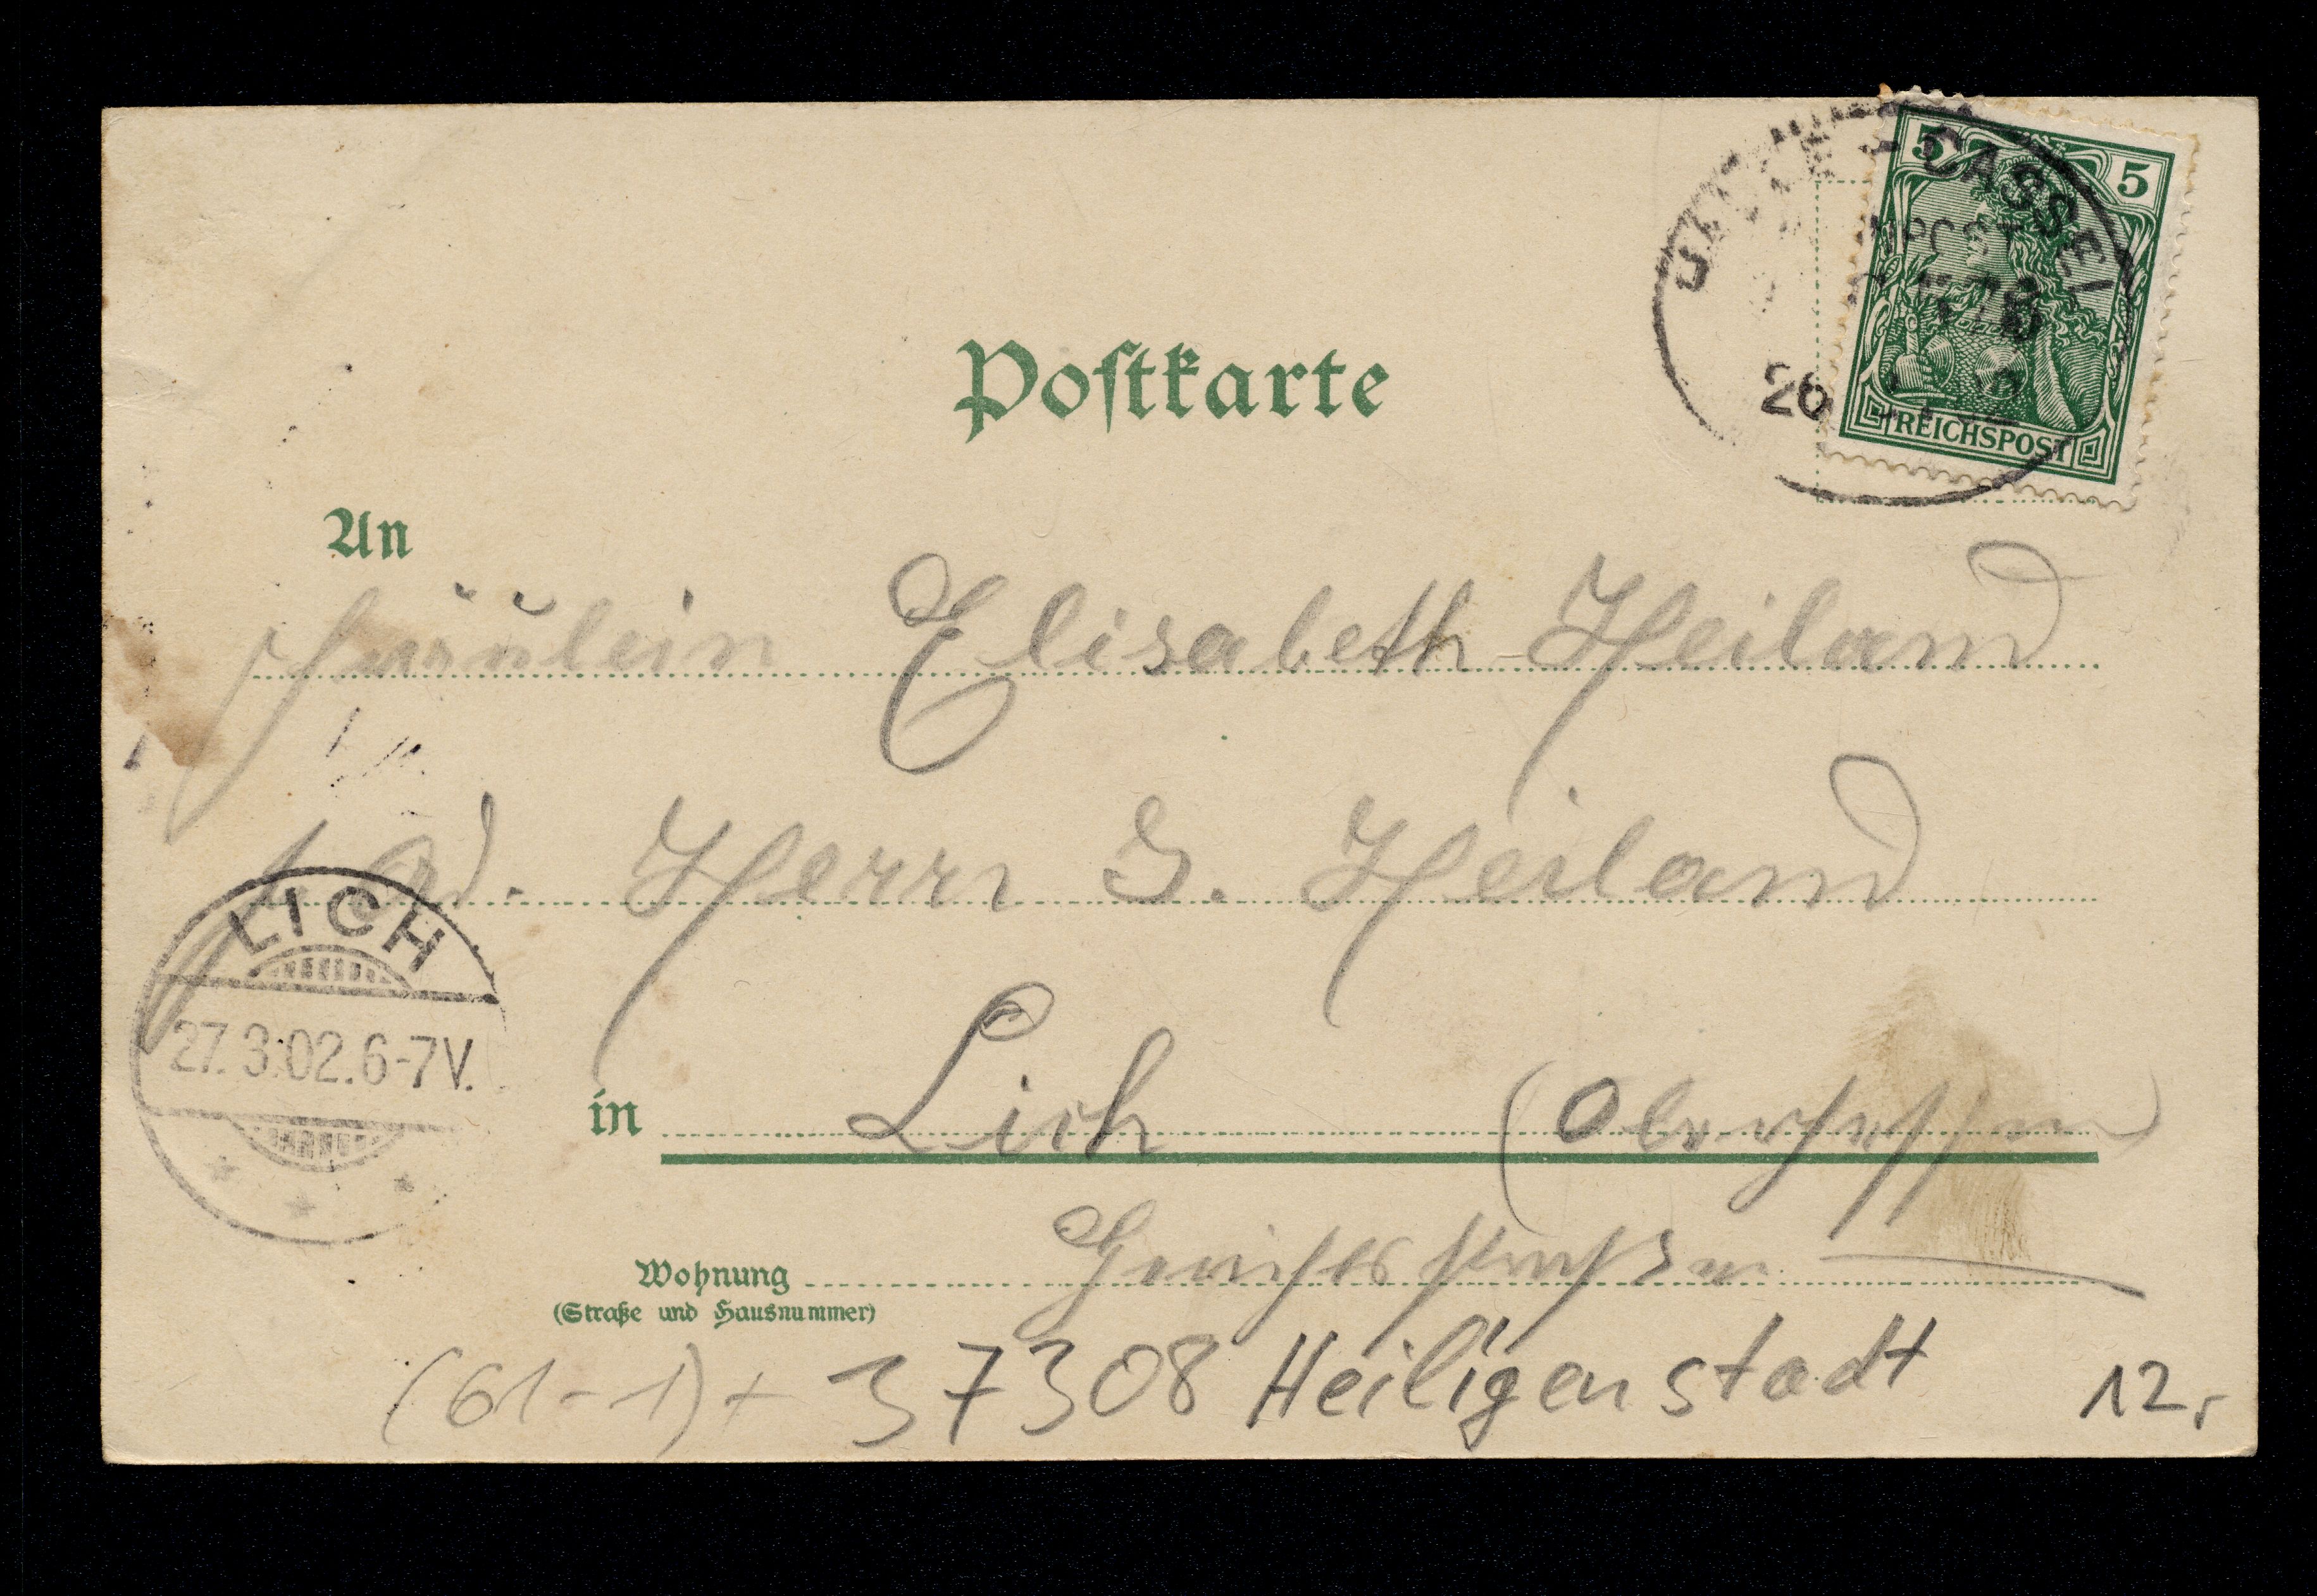 5 5
CASSEL
26
REICHSPOST
Postkarte
An
Fräulein Elisabeth Heiland
Ad. Herrn G. Heiland
LICH
27.3.02.6-7V.
in Lich (Oberhessen)
Wohnung
(Straße und Hausnummer)
(61-1)+ 37308 Heiligenstadt 12,-